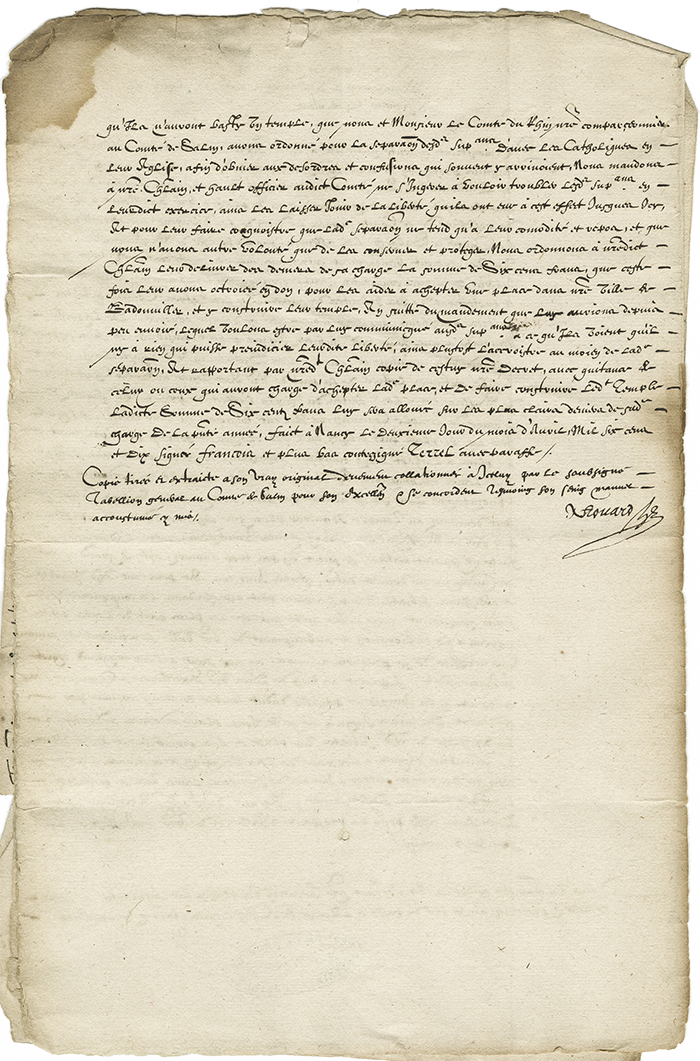 qu'Ilz n'auront basty un temple, que nous et Monsieur le Comte du Rhin nre comparçonnier
au Comté de Salm avons ordonné pour la separaōn desdz supans d'avec les Catholiques en
leur Eglise, afin d'obvier aux desordres et confusions qui souvent y arrivoient, Nous mandons
à nre Chlain, et hault officier audict Comté ne s'Ingerer à vouloir troubler lesdz supans en
leurdict exercice, ains les laisser Jouir de la liberté qu'ilz ont eue à cest effet Jusques Icy,
Et pour leur faire cognoistre que ladz separaōn ne tend qu'a leur comodité et repos, et que
nous n'avons autre volonté que de les conserver et proteger, Nous ordonnons à nredict
Chlain leur delivrer des deniers de sa charge la somme de Six cens frans, que ceste
fois leur avons octroiée en don, pour les aider à achepter une place dans nre Ville de
Badonviller, et y construire leur temple, En suitte du mandement que luy avions depuis
peu envoié, lequel voulons estre par luy communicqué ausdz supans à ce qu'Ilz voient qu'il
n'y à rien qui puisse prejudicier leurdite liberté, ains plustost l'accroistre au moien de ladz
separaōn, Et raportant par nred Chlain copie de cestuy nre Decret, avec quitance de
celuy ou ceux qui auront charge d'achepter ladz place, et de faire construire ledz Temple
ladicte Somme de Six centz frans luy sera allouée sur les plus clairs deniers de sadz
charge de la pnte année, faict à Nancy le deuxieme Jour du mois d'Avril, Mil six cens
et Dix signé François et plus bas contresigné Terrel avec paraffe /.
Copie tirée et extraicte a son vray original deuement collationnée à Iceluy par le soubsigné
Tabellion general au Comté de Salm pour son Excellce se concordent tesmoing son seing manuel
accoustumé cy mis /.